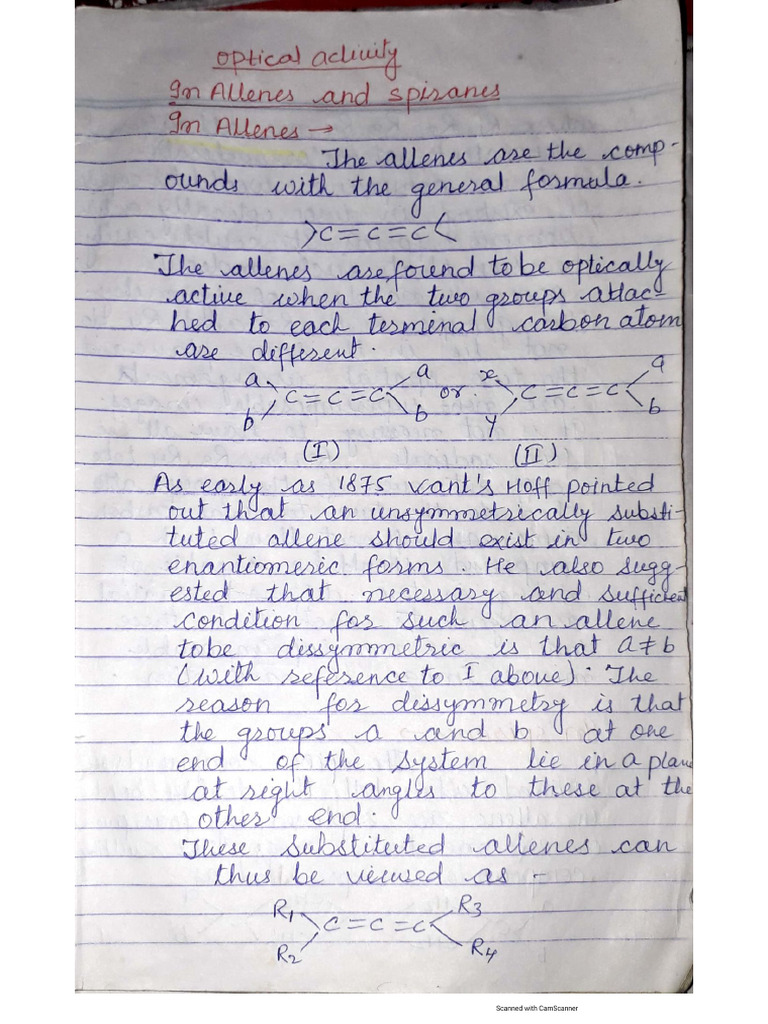 Optical activity
In Allenes and spiranes
In Allenes →
The allenes are the comp-
ounds with the general formula.
>C=C=C<
The allenes are found to be optically
active when the two groups attac-
hed to each terminal carbon atom
are different.
a b C=C=C a b or x y C=C=C a b
(I) (II)
As early as 1875 Vant's Hoff pointed
out that an unsymmetrically substi-
tuted allene should exist in two
enantiomeric forms. He also sugg-
ested that necessary and sufficient
condition for such an allene
tobe dissymmetric is that a≠b
(with reference to I above). The
reason for dissymmetry is that
the groups a and b at one
end of the system lie in a plane
at right angles to these at the
other end.
These substituted allenes can
thus be viewed as -
R1 R2 C=C=C R3 R4
Scanned with CamScanner